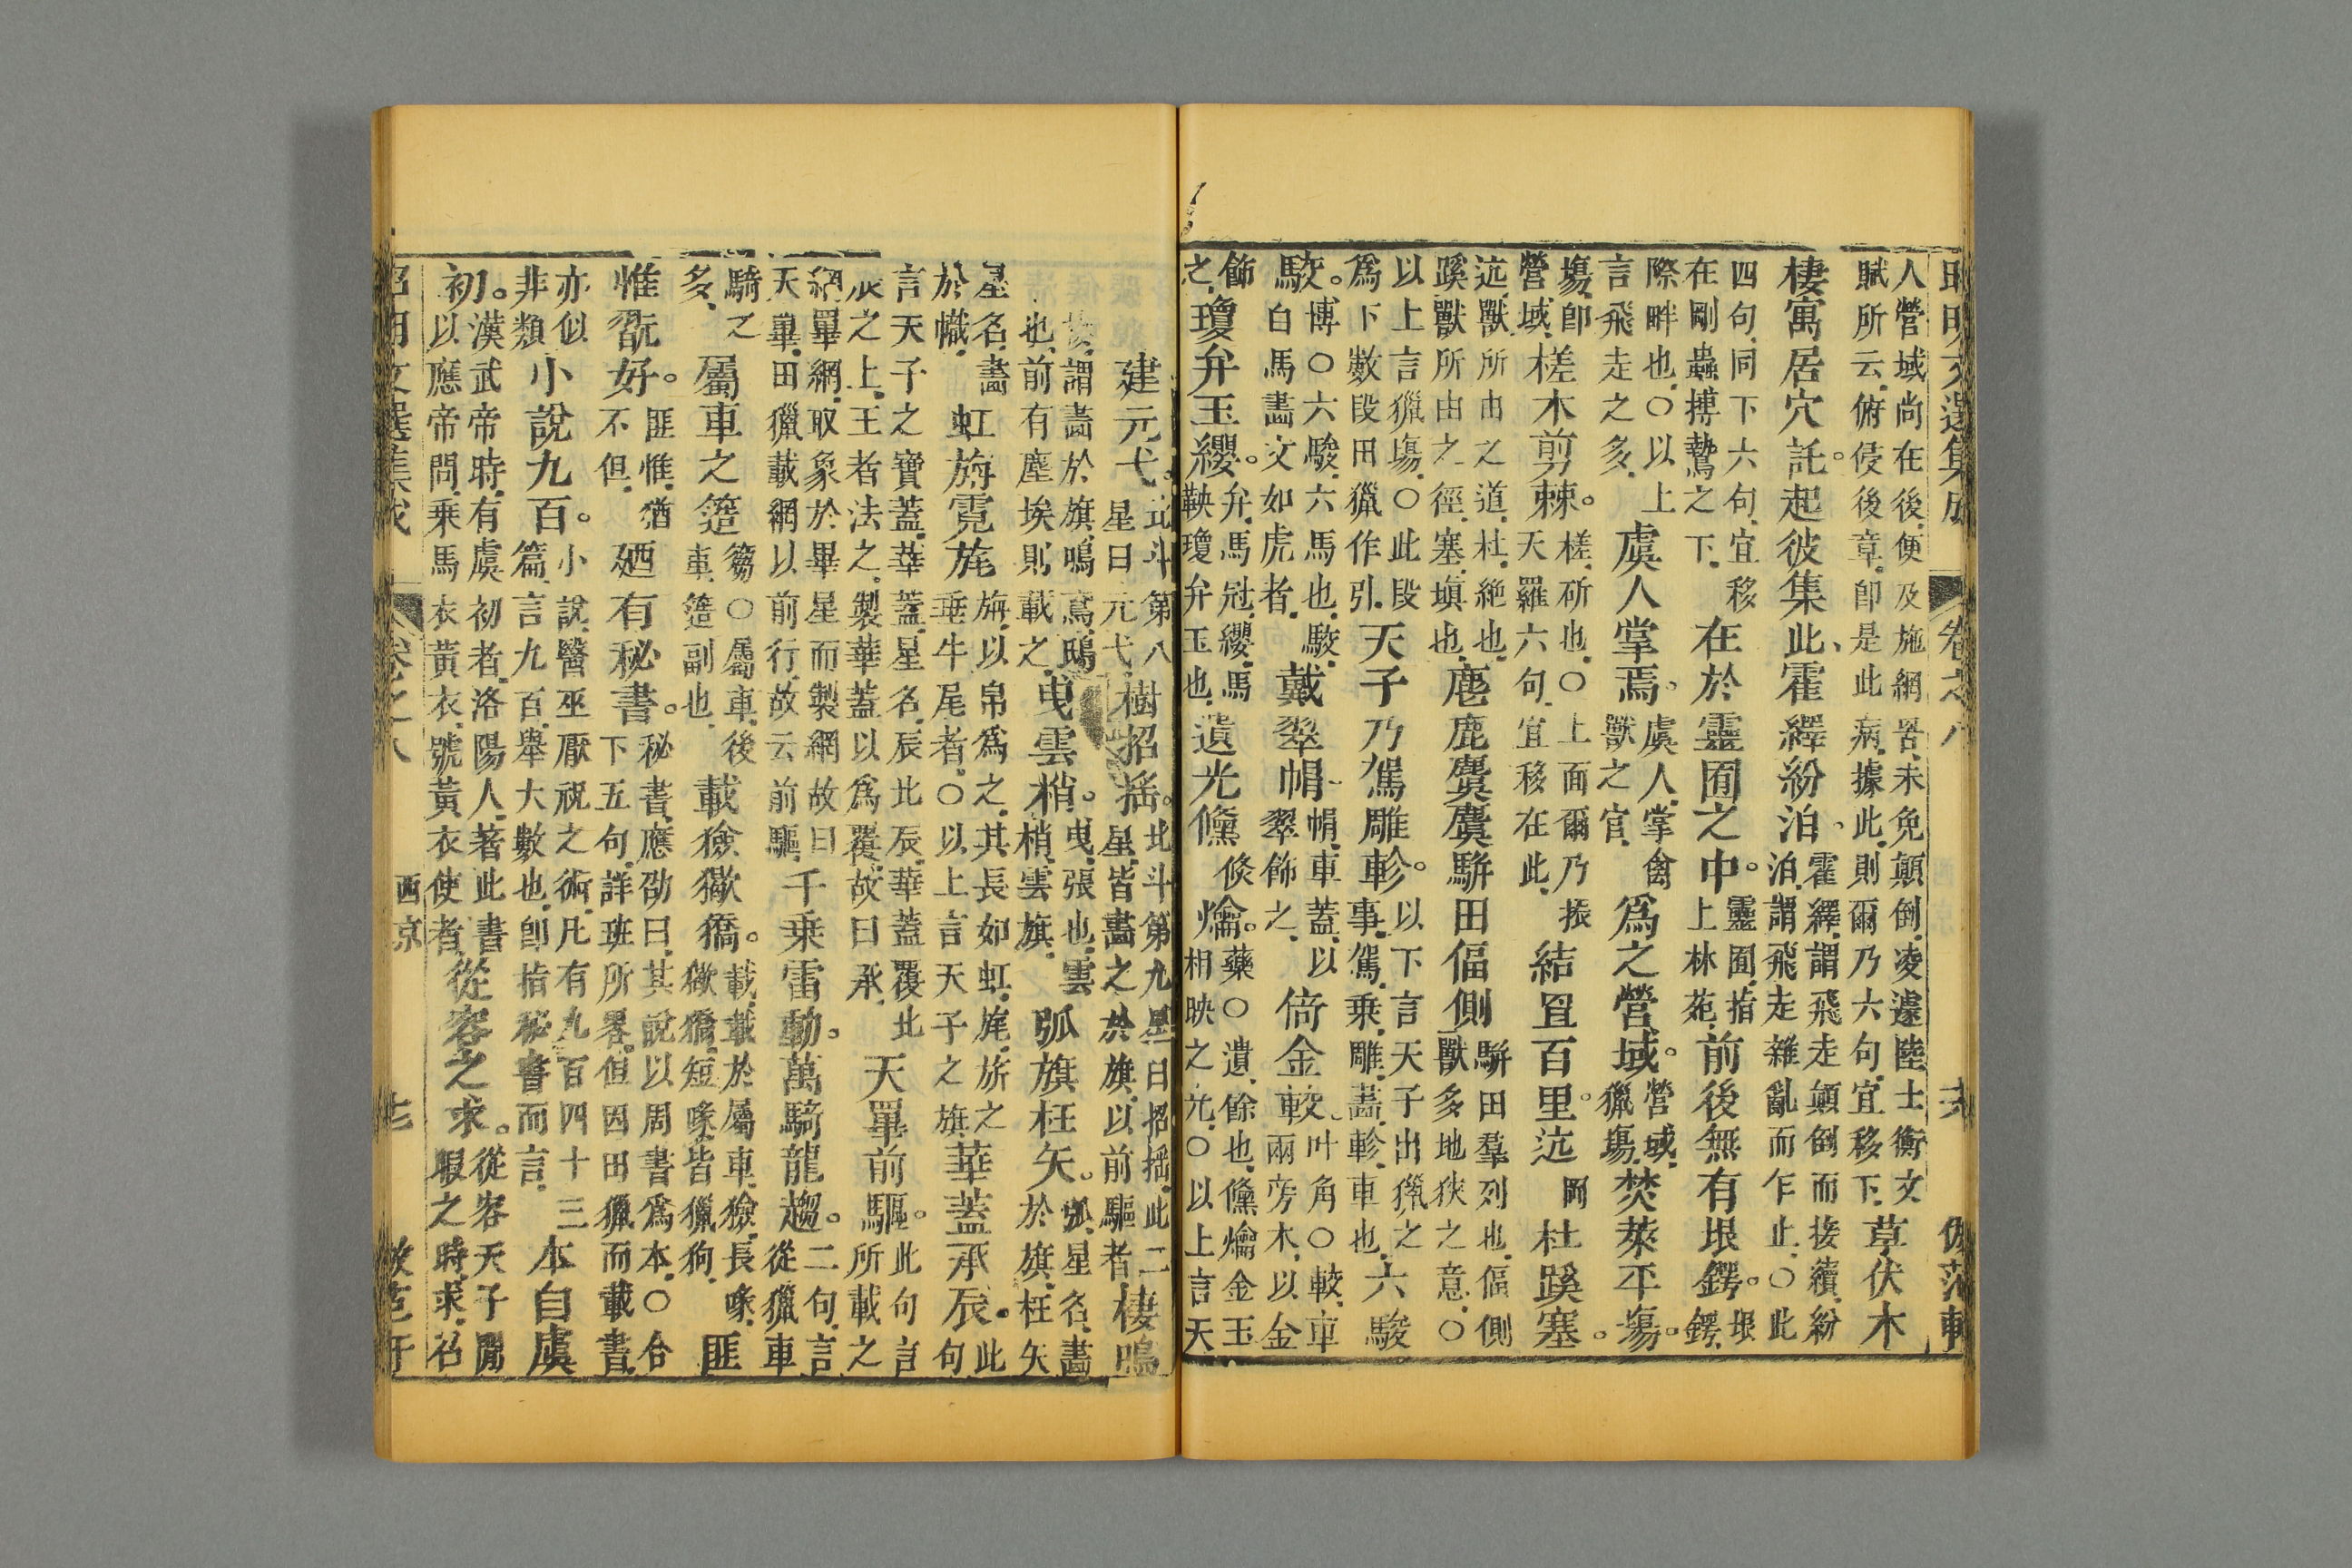 人營域尚在後便及施網罟未免顛倒凌遽陸士衡文
賦所云俯侵後章卽是此病據此則爾乃六句宜移下草伏木
棲寓居穴託。起彼集此、霍繹紛泊。霍繹謂飛走顛倒而接續紛
泊謂飛走雜亂而乍止○此
四句同下六句宜移
在剛蟲搏鷙之下在於靈囿之中。靈囿指
上林苑前後無有垠鍔。垠
鍔
際畔也○以上
言飛走之多虞人掌焉。虞人掌禽
獸之官爲之營域。營域
獵塲焚萊平塲。
塲卽
營域槎木剪棘。槎斫也○上面爾乃振
天羅六句宜移在此結罝百里。迒岡杜蹊塞。
迒獸所由之道杜絶也
蹊獸所由之徑塞塡也麀鹿麌麌騈田偪側騈田羣列也偪側
獸多地狹之意○
以上言獵塲○此段
爲下數段田獵作引天子乃駕雕軫。以下言天子出獵之
事駕乘雕畵軫車也六駿
駮。博○六駿六馬也駮
白馬畵文如虎者戴翠帽帽車蓋以
翠飾之倚金較叶角○較車
兩旁木以金
飾
之瓊弁玉纓。弁馬冠纓馬
鞅瓊弁玉也遺光儵倏爚。藥○遺餘也儵爚金玉
相映之光○以上言天
建元弋。北斗第八
星曰元弋樹招搖。北斗第九星曰招搖此二
星皆畵之於旗以前驅者棲鳴
鳶。謂畵於旗鳴鳶鴟
也前有塵埃則載之曳雲梢。曳張也雲
梢雲旗弧旗枉矢。弧星名畵
於旗枉矢
星名畵
於幟虹旃霓旄旃以帛爲之其長如虹旄旂之
垂牛尾者○以上言天子之旗華蓋承辰。此
句
言天子之寶蓋華蓋星名辰北辰華蓋覆北
辰之上王者法之製華蓋以爲覆故曰承天畢前驅。此句言
所載之
網畢網取象於畢星而製網故曰
天畢田獵載網以前行故云前驅千乘雷動。萬騎龍趨。二句言
從獵車
騎之
多屬車之簉篘○屬車後
車簉副也載獫猲獢。載載於屬車獫長喙
猲獢短喙皆獵狗匪
惟翫好。匪惟猶
不但廼有秘書。秘書應劭曰其說以周書爲本○合
下五句詳班所畧但因田獵而載書
亦似
非類小說九百。小說醫巫厭祝之術凡有九百四十三
篇言九百舉大數也卽指秘書而言本自虞
初。漢武帝時有虞初者洛陽人著此書
以應帝問乘馬衣黃衣號黃衣使者從容之求。從容天子閒
暇之時求召